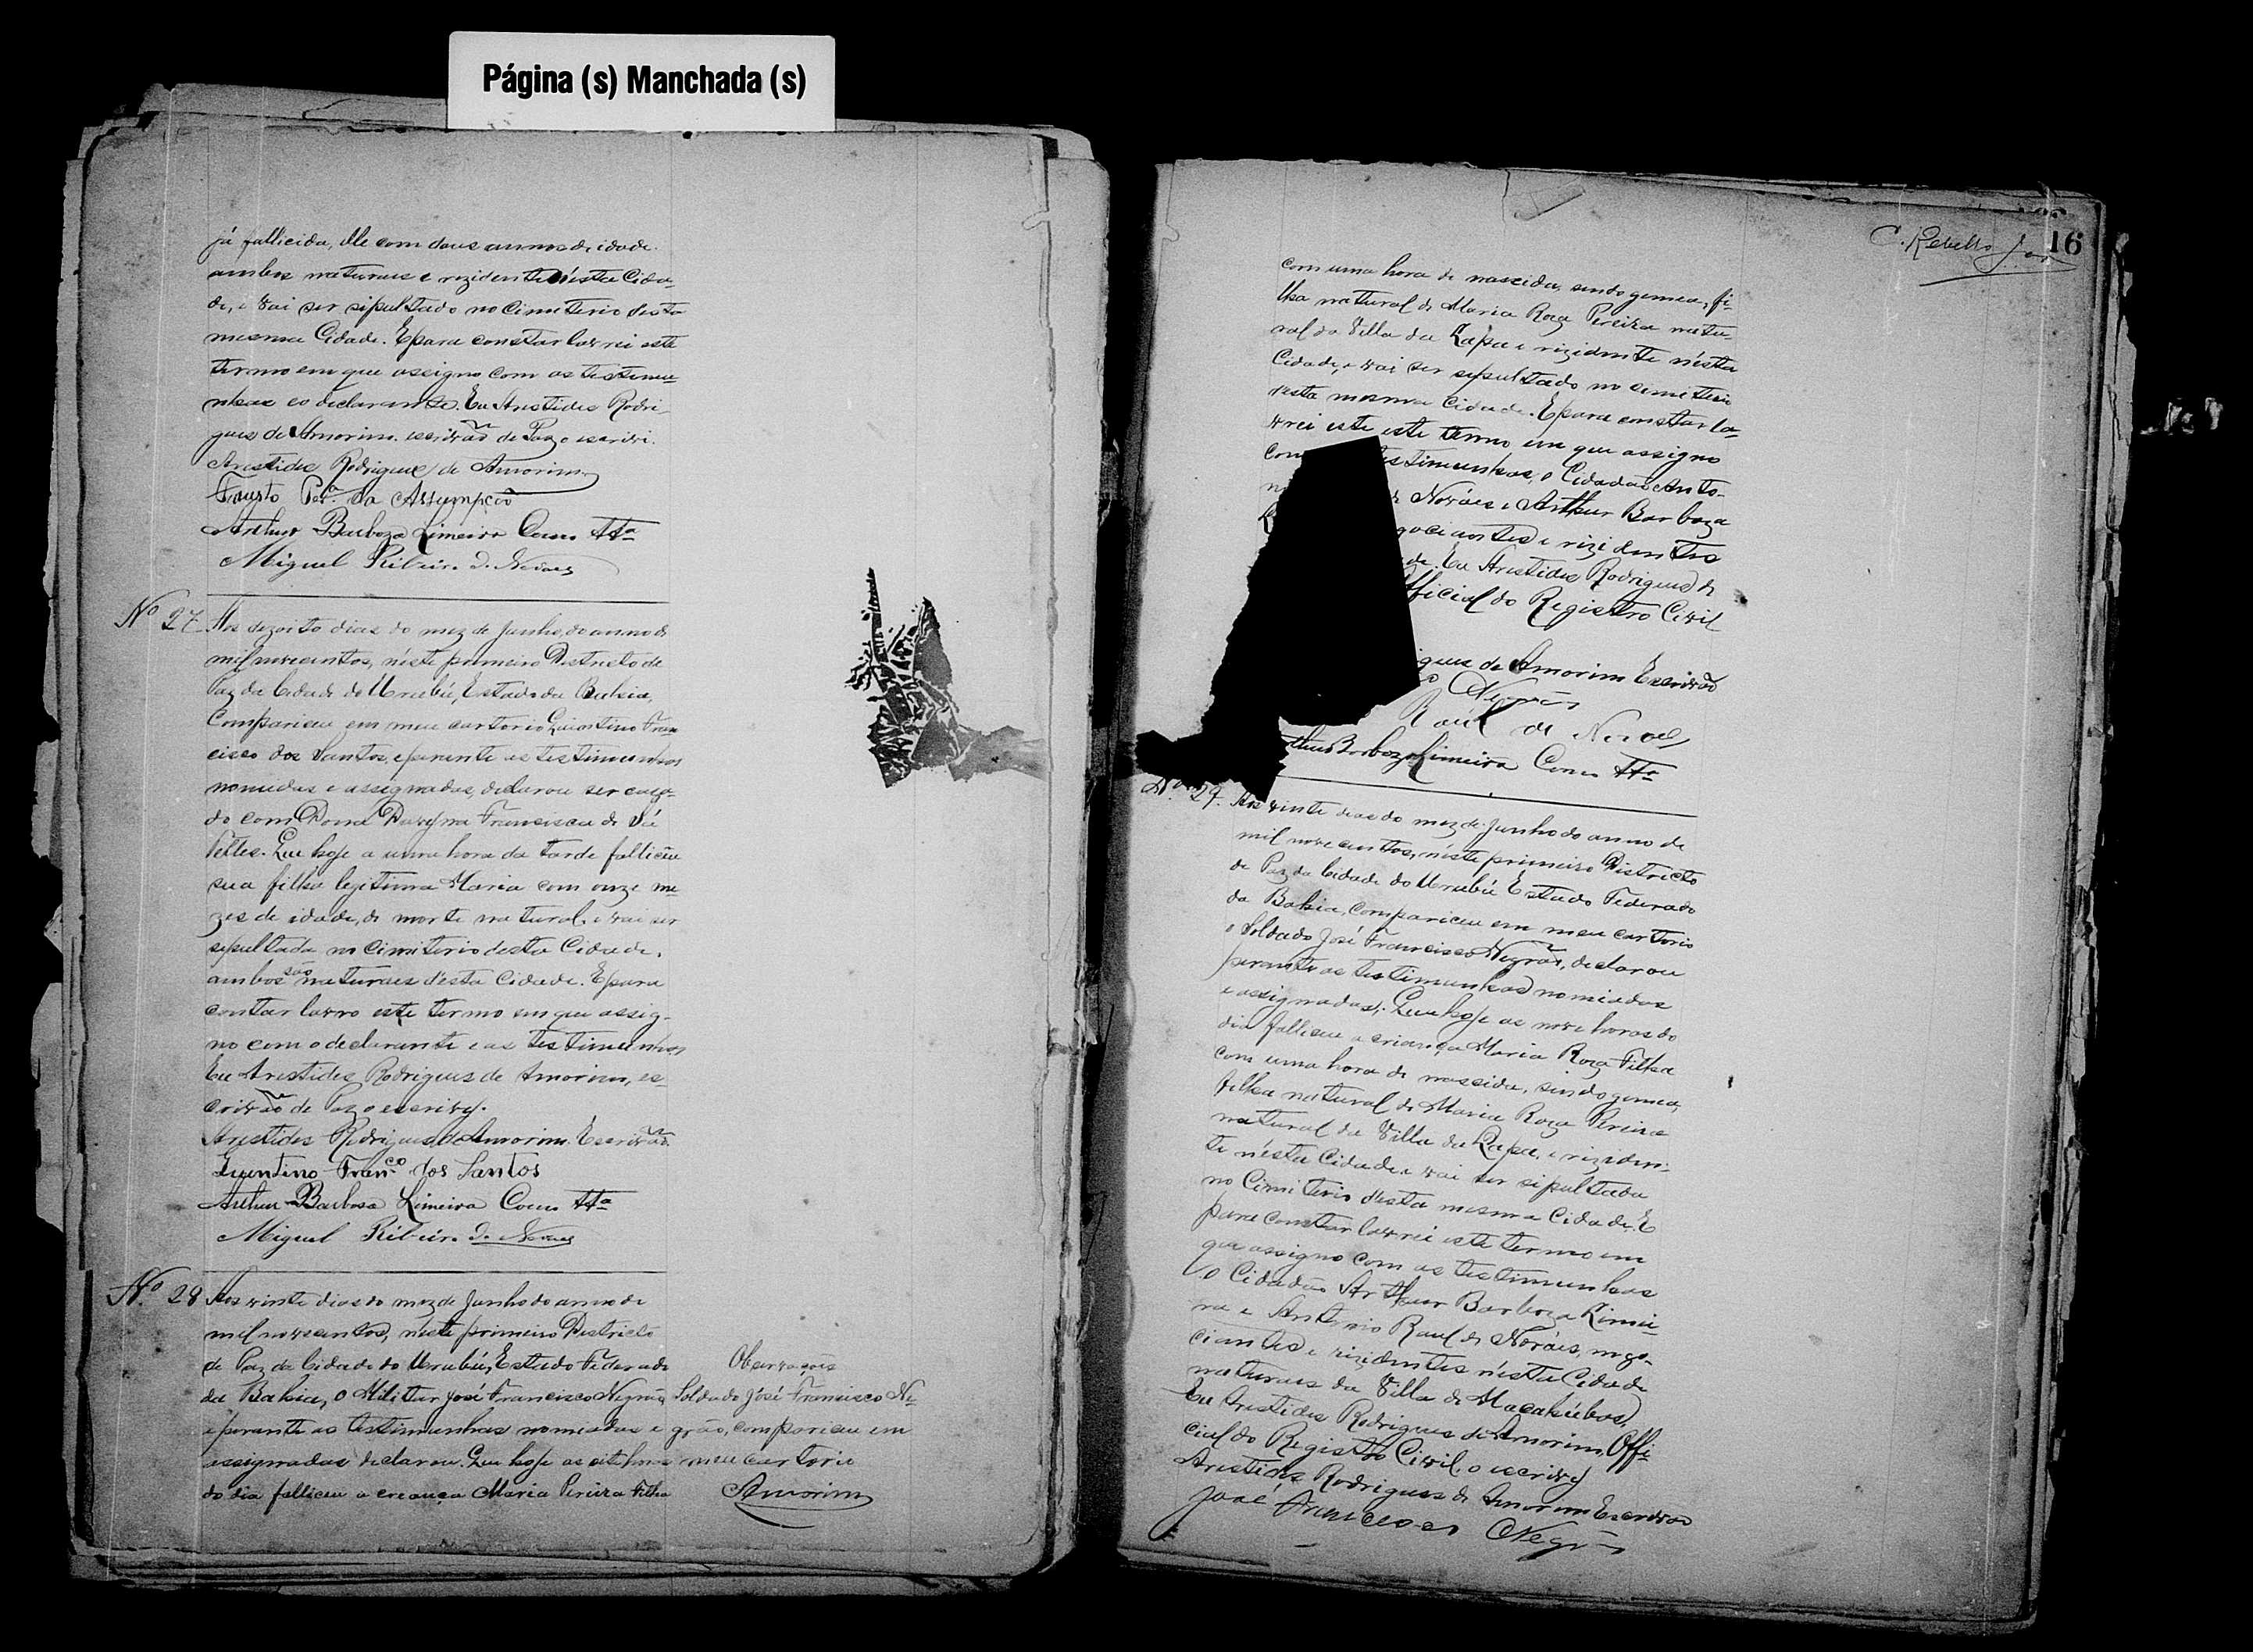 Página (s) Manchada (s)
já fallicida, elle com dous annos de idade.
ambos naturaes e rizidente n'ésta Cida-
de, e vai ser sipultado no Cimiterio desta
mesma Cidade. E para constar lavrei este
termo em que assigno com as testimu-
nhas e o declarante. Eu Aristides Rodri-
gues de Amorim. escrivão de Paz o escrivi.
Aristides Rodrigues de Amorim
Fausto Per.ª da Assumpção
Arthur Barboza Limeira Como tta
Miguel Ribeiro de Novaes
Nº 27 Aos dezoito dias do mez de Junho, do anno de
mil novecentos, n'éste primeiro Districto de
Paz da Cidade do Urubú, Estado da Bahia,
Compariceu em meu cartorio Quintino Fran
cisco dos Santos, e perante as testimunhas
nomiadas e assignadas, declarou ser caza-
do com Dona Francisca de Sá
Telles. Que hoje a uma hora da tarde falliceu
sua filha legitima Maria com onze me-
zes de idade, de morte natural. e vai ser
sepultada no Cimiterio desta Cidade.
ambos são naturaes d'ésta Cidade. E para
contar lavro este termo em que assig-
no com o declarante e as testimunhas
Eu Aristides Rodrigues de Amorim, es-
crivão de Paz o escrivy.
Aristides Rodrigues de Amorim. Escrivão
Quintino Fran.co dos Santos
Arthur Barbosa Limeira Como tta
Miguel Ribeiro de Novaes
Nº 28 Aos vinte dias do mez de Junho do anno de
mil novecentos, n'éste primeiro Districto
de Paz da Cidade do Urubú, Estado Federado
da Bahia, o Militar José Francisco Negrão
e perante as testimunhas nomiadas e
assignadas declarou. Que hoje as oito horas
do dia falliceu a creança Maria Pereira Filha
Observações
Soldado José Francisco Ne-
grão, compariceu em
meu cartorio
Amorim
C. Rebello
16
com uma hora de nascida, sendo gemea, fi-
lha natural de Maria Roza Pereira natu-
ral da Villa da Lapa e rizidente n'ésta
Cidade, e vai ser sepultado no cimiterio
d'esta mesma Cidade. E para constar la-
vrei este este termo em que assigno
com testimunhas, o Cidadão Anto-
de Nováes e Arthur Barboza
gociantes e rizidentes
de. Eu Aristides Rodrigues de
fficial do Registro Civil
igues de Amorim Escrivão
Negrão
Raúl de Novaes
thur Barboza Limeira Como tta
Nº 29. Aos vinte dias do mez de Junho do anno de
mil novecentos, n'éste primeiro Districto
de Paz da Cidade do Urubú Estado Federado
da Bahia, compariceu em meu cartorio
o Soldado José Francisco Negrão, declarou
perante as testimunhas nomiadas
e assignadas. Que hoje as nove horas do
dia falliceu a criança Maria Roza Filha
com uma hora de nascida, sendo gemea,
filha natural de Maria Roza Pereira
natural da Villa da Lapa, e riziden-
te n'ésta Cidade e vai ser sipultada
no Cimiterio d'ésta mesma Cidade. E
para constar lavrei este termo em
que assigno com as testimunhas
o Cidadão Arthur Barboza Limei-
ra e Antonio Raul de Nováes, nego-
ciantes e rizidentes n'ésta Cidade
naturaes da Villa de Macahúbas,
Eu Aristides Rodrigues de Amorim, Offi-
cial do Registro Civil. o escrivy
Aristides Rodrigues de Amorim Escrivão
José Francisco Negrão